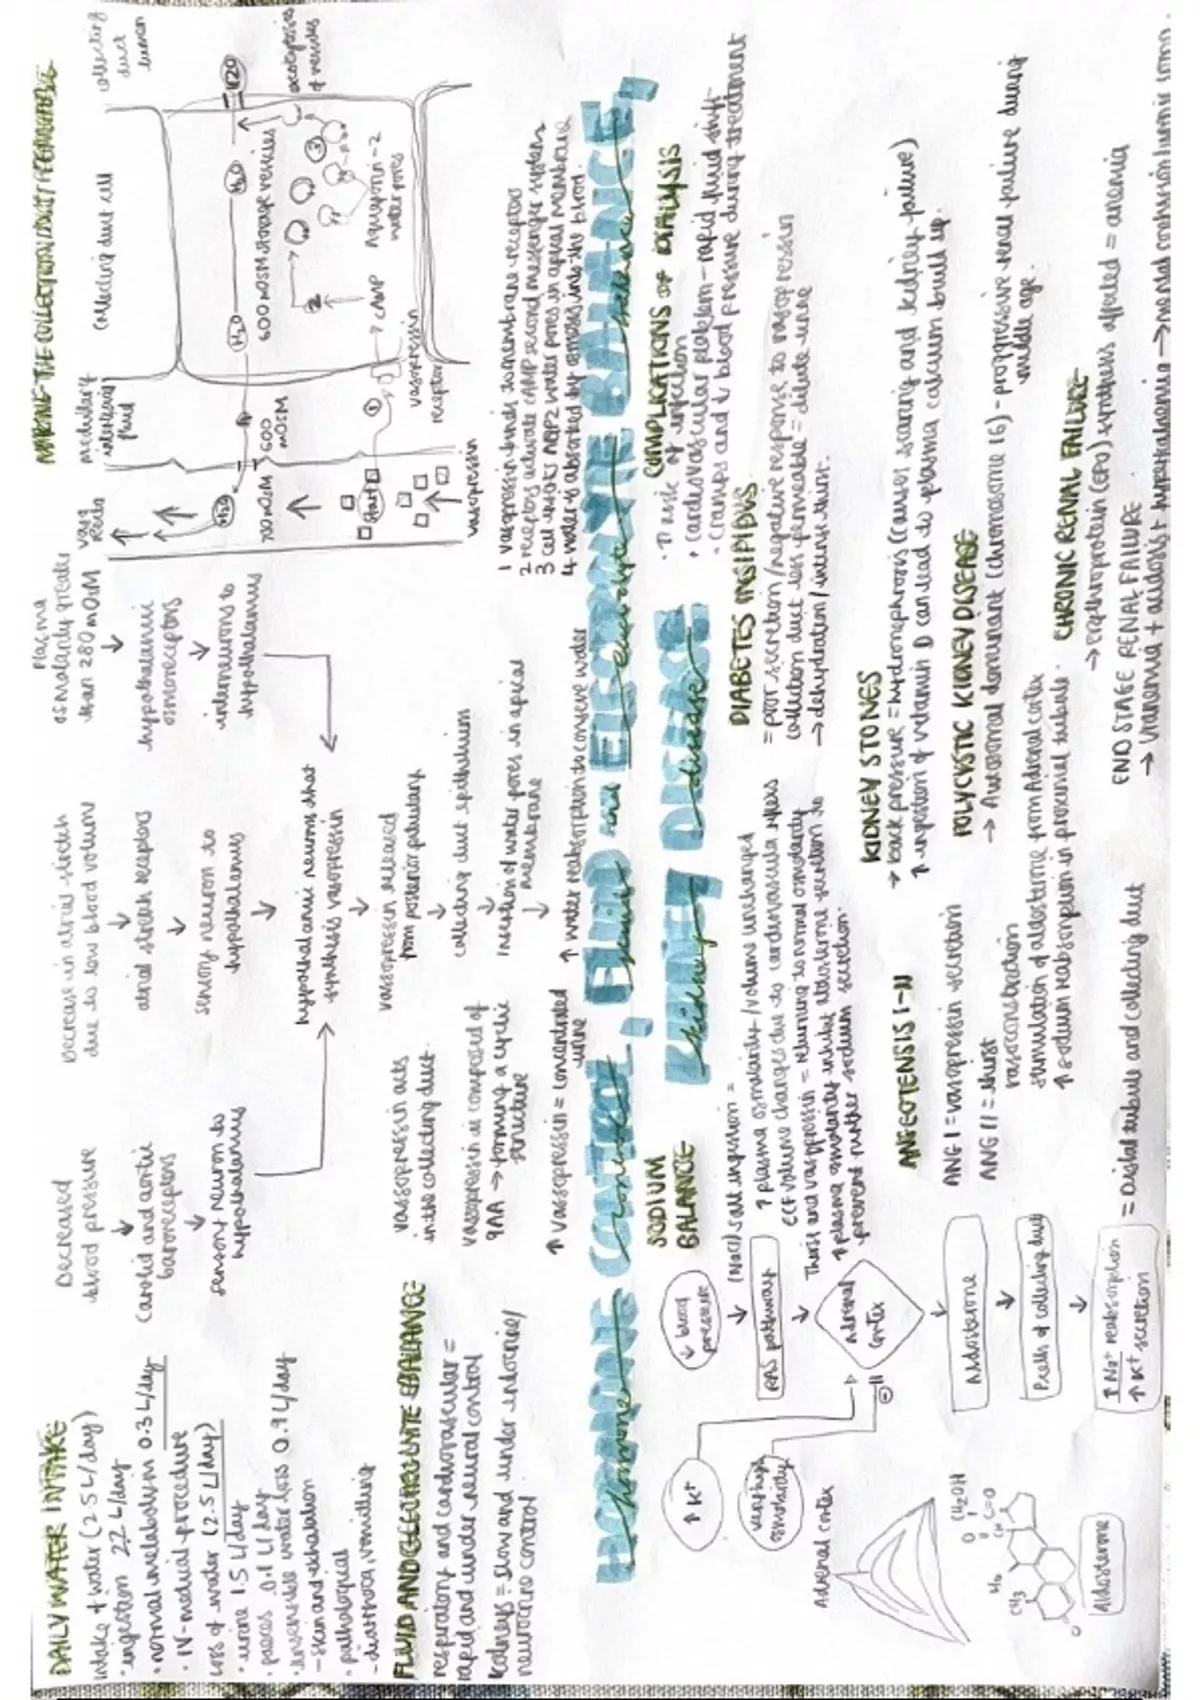 DAILY WATER INTAKE
Intake of water (2.5L/day)
• ingestion 2.2 L/day
• normal metabolism 0.3L/day
• IV-medical procedure
Loss of water (2.5L/day)
• urine 1.5L/day
• faeces 0.1L/day
• insensible water loss 0.9L/day
- skin and exhalation
• pathological
- diarrhoea, vomitting
FLUID AND ELECTROLYTE BALANCE
respiratory and cardiovascular =
rapid and under neural control
Kidneys = slow and under endocrine/
neurocrine control
Decreased
blood pressure
↓
Carotid and aortic
baroreceptors
↓
sensory neuron to
hypothalamus
Decrease in atrial stretch
due to low blood volume
↓
atrial stretch receptors
↓
sensory neuron to
hypothalamus
↓
Plasma
osmolarity greater
than 280 mOsM
↓
hypothalamic
osmoreceptors
↓
interneurons to
hypothalamus
hypothalamic neurons that
synthesis vasopressin
↓
vasopressin released
from posterior pituitary
↓
collecting duct epithelium
↓
insertion of water pores in apical
membrane
↓
↑ water reabsorption to conserve water
vasopressin acts
in the collecting duct.
vasopressin is composed of
9AA → forming a cyclic
structure
↑ vasopressin = concentrated
urine
MAKING THE COLLECTION DUCT PERMEABLE
vasa
recta
medullary
interstitial
fluid
Collecting duct cell
collecting
duct
lumen
H2O
H2O
H2O
H2O
700 mOSM
600
mOSM
600 mOSM
storage vesicles
exocytosis
of vesicles
Start
1
2
3
cAMP
Aquaporin-2
water pores
vasopressin
vasopressin
receptor
1 vasopressin binds to membrane receptor
2 receptor activate cAMP second messenger system
3 cell inserts AQP2 water pores in apical membrane
4 water is absorbed by osmosis into the blood.
HORMONE CONTROL, FLUID and ELECTROLYTE BALANCE,
hormone control, fluid electrolyte balance,
KIDNEY DISEASE
kidney disease
↓ blood
pressure
↓
RAS pathway
↓
Adrenal
cortex
↓
Aldosterone
↓
P cells of collecting duct
↓
↑ Na+ reabsorption
↑ K+ secretion
= Distal tubule and collecting duct
↑ K+
very high
osmolarity
Adrenal cortex
CH2OH
C=O
CH3
Aldosterone
SODIUM
BALANCE
(NaCl) salt ingestion =
↑ plasma osmolarity / volume unchanged
ECF volume changes due to cardiovascular reflexes
Thirst and vasopressin = returning to normal osmolarity
↑ plasma osmolarity inhibit aldosterone secretion to
prevent further sodium secretion.
ANGEOTENSIS I-II
ANG I = vasopressin secretion
ANG II = thirst
vasoconstriction
stimulation of aldosterone from Adrenal cortex
↑ sodium reabsorption in proximal tubule.
COMPLICATIONS OF DIALYSIS
• ↑ risk of infection
• cardiovascular problem - rapid fluid shift
• cramps and ↓ blood pressure during treatment
DIABETES INSIPIDUS
= poor secretion/negative response to vasopressin
collection duct less permeable = dilute urine
→ dehydration/intense thirst.
KIDNEY STONES
→ back pressure = hydronephrosis (causes scaring and kidney failure)
↑ ingestion of vitamin D can lead to plasma calcium build up.
POLYCYSTIC KIDNEY DISEASE
→ Autosomal dominant (chromosome 16) - progressive renal failure during
middle age.
CHRONIC RENAL FAILURE
→ erythroprotein (EPO) synthesis affected = anemia
END STAGE RENAL FAILURE
→ uranemia + acidosis + hyperkalaemia → mental confusion/